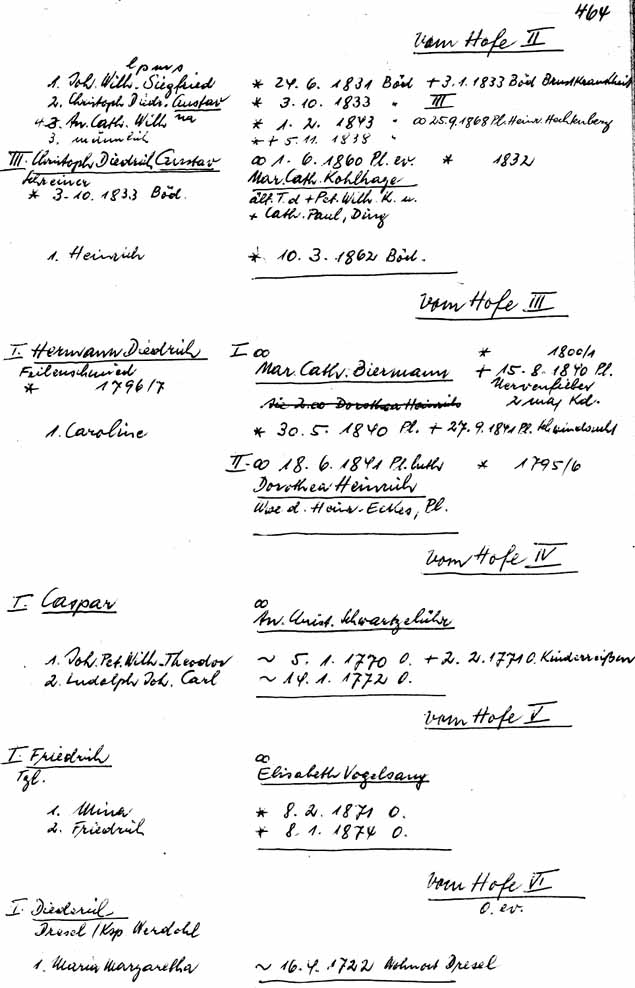 464
vom Hofe II
1. Joh. Wilh. Siegfried * 24. 6. 1831 Böd + 3.1.1833 Böd Brustkrankheit
2. Christoph Diedr. Gustav * 3. 10. 1833 " III
4. 3. An. Cath. Wilh na * 1. 2. 1843 " ∞ 25.9.1868 Pl. Heinr. Hechtenberg
3. männlich *+ 5. 11. 1838 "
III. Christoph Diedrich Gustav ∞ 1. 6. 1860 Pl. ev. * 1832
Schreiner Mar. Cath. Kohlhage
* 3. 10. 1833 Böd. ält. T. d + Pet. Wilh. K. u.
+ Cath. Paul,
1. Heinrich * 10. 3. 1862 Böd.
vom Hofe III
I. Hermann Diedrich I ∞ * 1800/1
Feilenschmied Mar. Cath. Biermann + 15. 8. 1840 Pl.
* 1796/7 Nervenfieber
Sie 2. ∞ Dorothea Heinrich 2 maj Kd.
1. Caroline * 30. 5. 1840 Pl. + 27. 9. 1841 Pl. Schwindsucht
II. ∞ 18. 6. 1841 Pl. luth * 1795/6
Dorothea Heinrich
Wwe d. Heinr. Eckes, Pl.
vom Hofe IV
I. Caspar ∞
An. Christ. Schwartzelühr
1. Joh. Pet. Wilh. Theodor ~ 5. 1. 1770 O. + 2. 2. 1771 O. Kinderreißen
2. Ludolph Joh. Carl ~ 14. 1. 1772 O.
vom Hofe V
I. Friedrich ∞
Tgl. Elisabeth Vogelsang
1. Mina * 8. 2. 1871 O.
2. Friedrich * 8. 1. 1874 O.
vom Hofe VI
O. ev.
I. Diederich
Dresel / Ksp Werdohl
1. Maria Margaretha ~ 16. 4. 1722 Wohnort Dresel